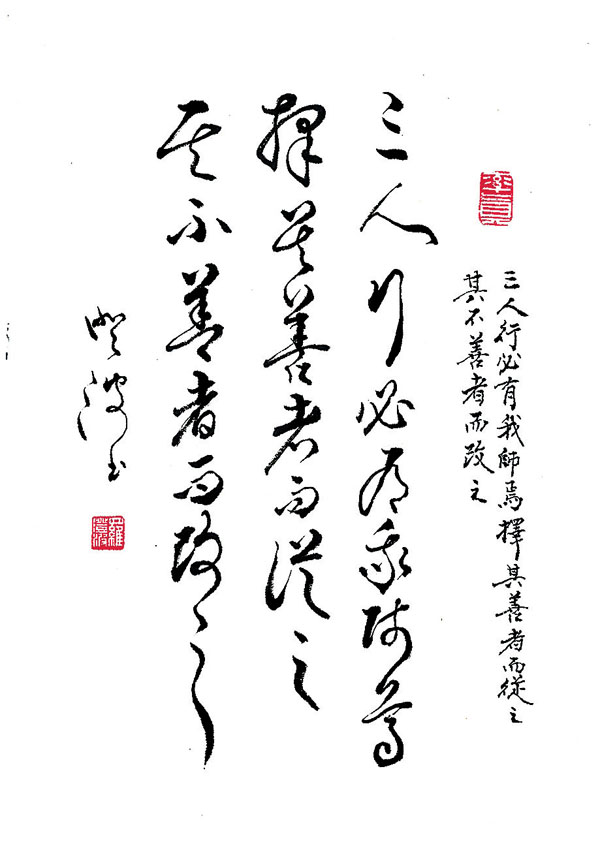 三人行必有我師焉擇其善者而從之
其不善者而改之
三人行必有我師焉
擇其善者而從之
其不善者而改之
澄波书
羅澄波